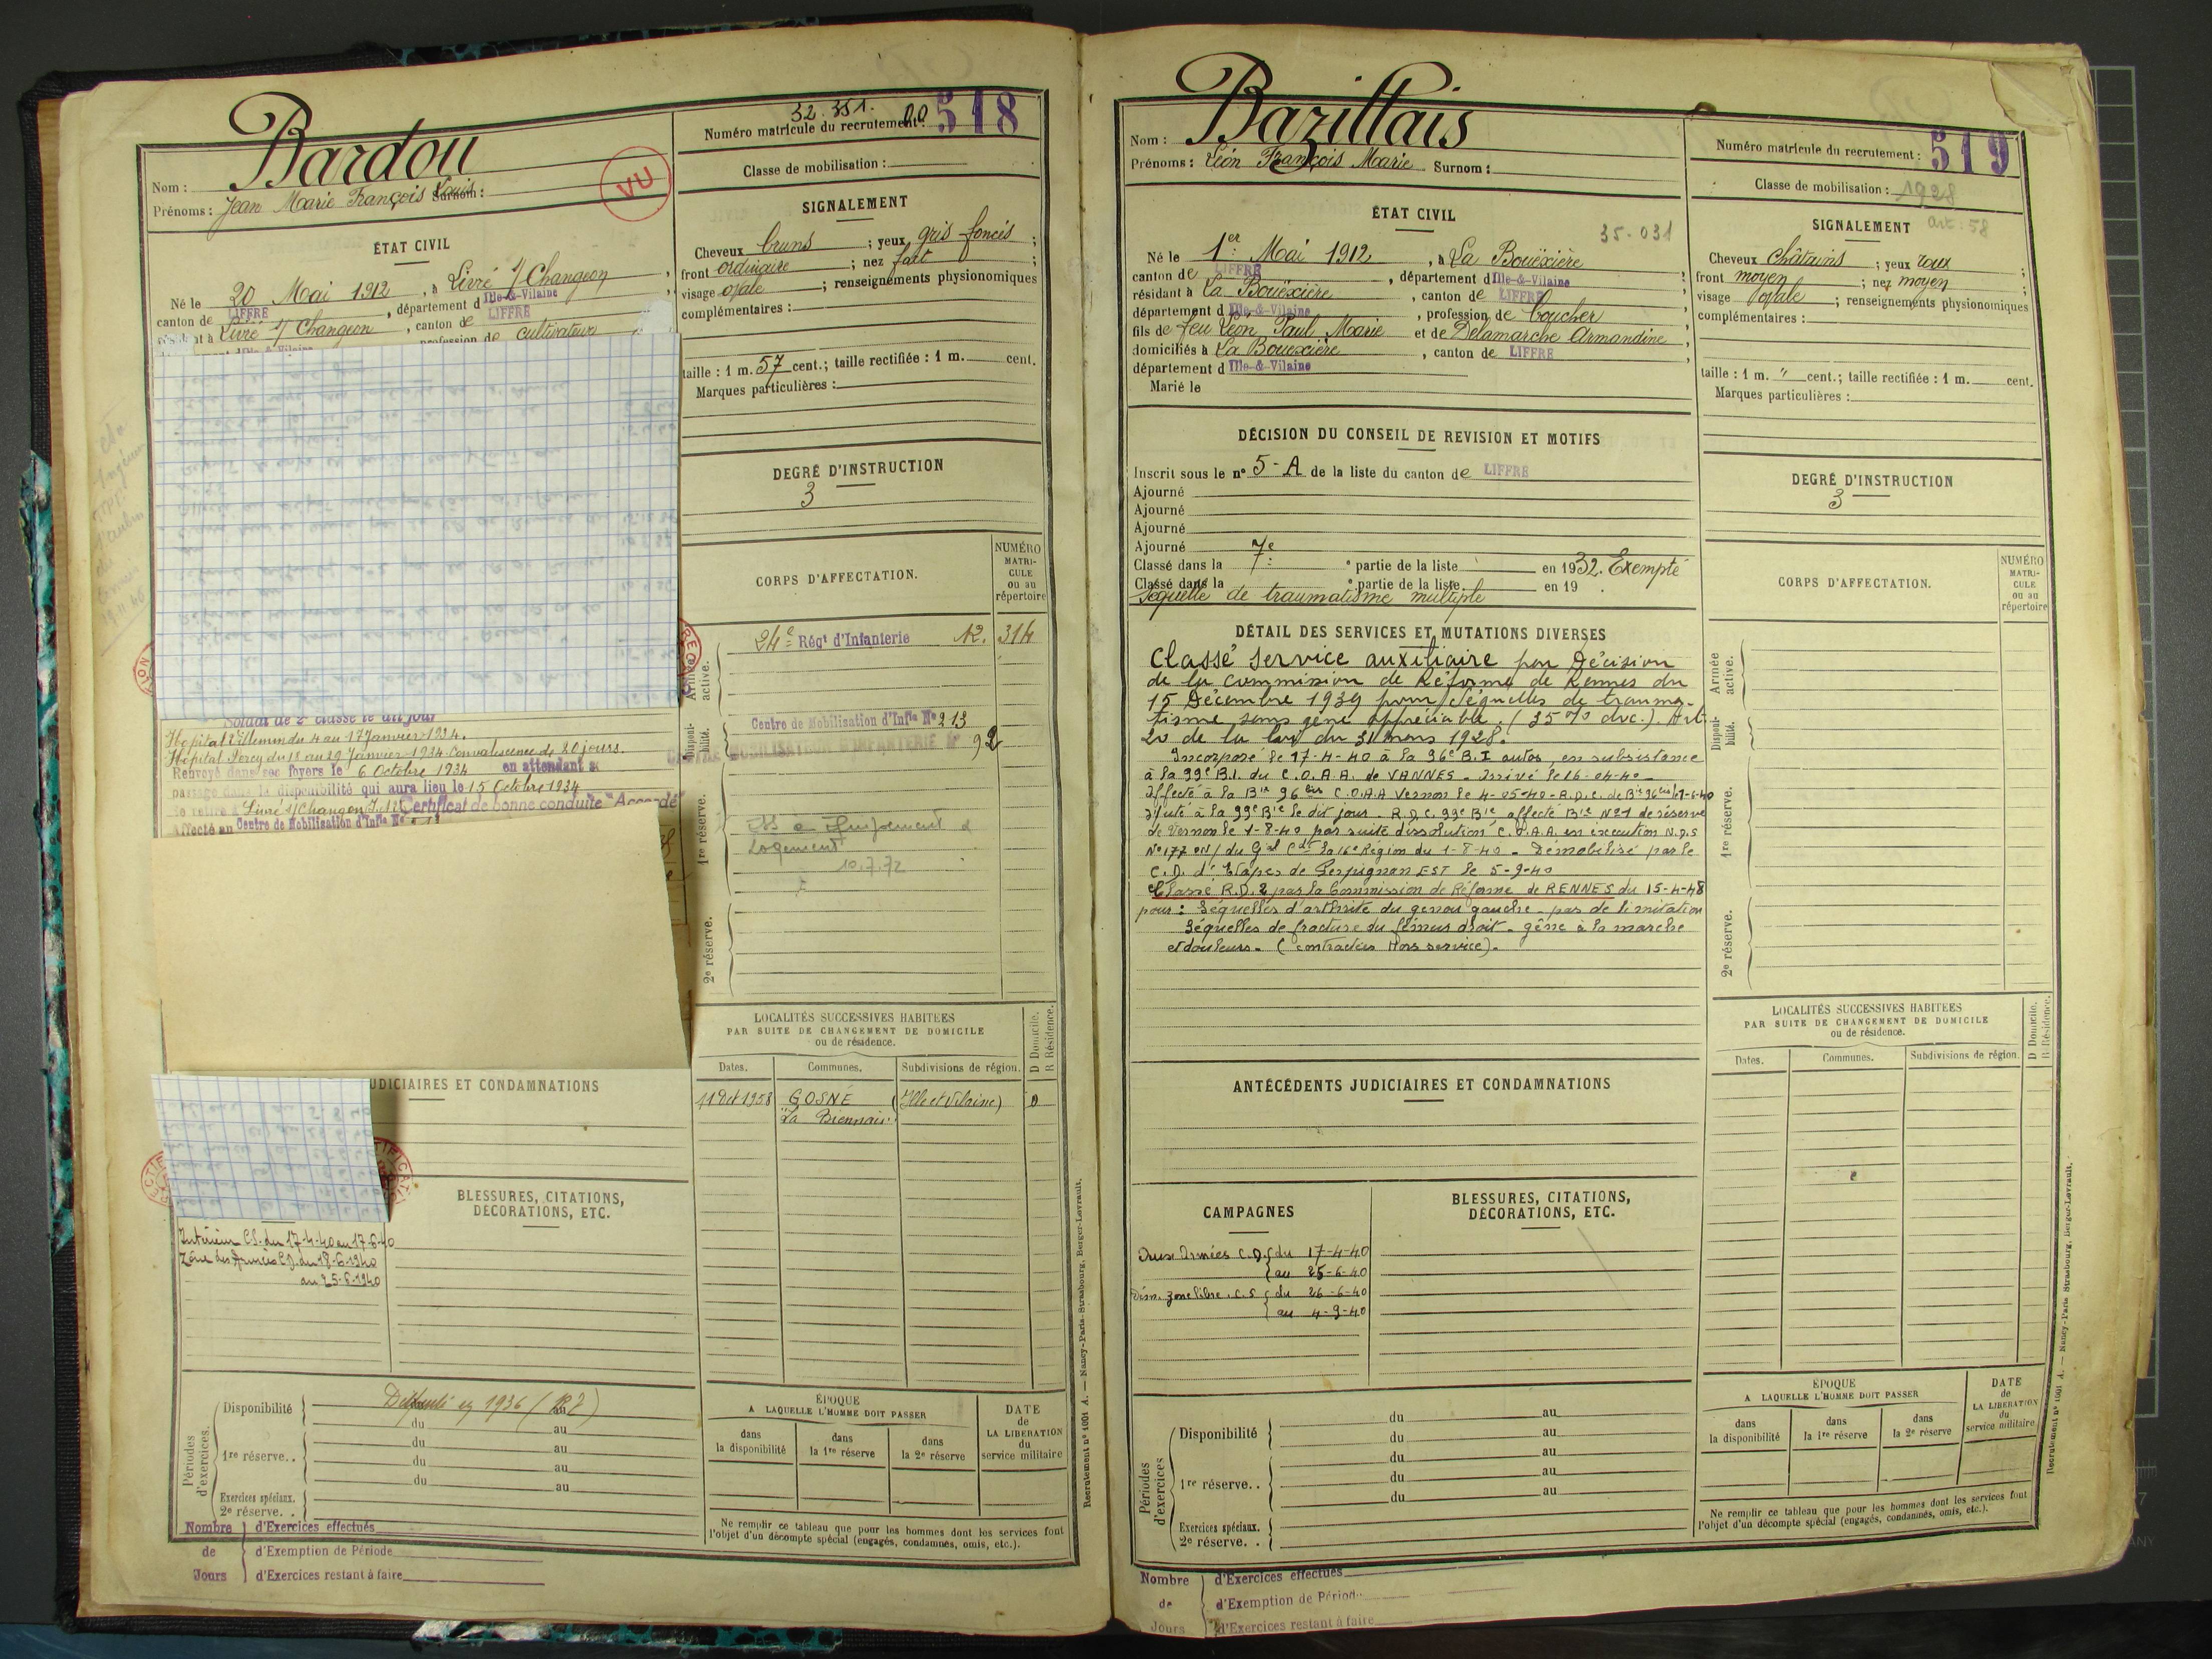 Bardou
32.351.
Numéro matricule du recrutement : 518
Nom :
Prénoms : Jean Marie François Louis Surnom :
VU
Classe de mobilisation :
ÉTAT CIVIL
Né le 20 Mai 1912, à Livré s/ Changeon,
canton de LIFFRÉ, département d Ille-&-Vilaine
résidant à Livré s/ Changeon, canton de LIFFRÉ
profession de cultivateur
SIGNALEMENT
Cheveux bruns ; yeux gris foncés ;
front ordinaire ; nez fort ;
visage ovale ; renseignements physionomiques
complémentaires :
taille : 1 m. 57 cent.; taille rectifiée : 1 m. cent.
Marques particulières :
DEGRÉ D'INSTRUCTION
3
CORPS D'AFFECTATION.
NUMÉRO MATRICULE ou au répertoire
Armée active.
24e Régt d'Infanterie 12. 314
Disponibilité.
Centre de Mobilisation d'Infie No 213
CENTRE MOBILISATION D'INFANTERIE N° 92
1re réserve.
Logement
10.7.72
2e réserve.
Soldat de 2e classe le dit jour
Hopital Villemin du 4 au 17 Janvier 1934.
Hôpital Percy du 18 au 29 Janvier 1934. Convalescence de 20 jours.
Renvoyé dans ses foyers le 6 Octobre 1934 en attendant s
passage dans la disponibilité qui aura lieu le 15 Octobre 1934
Se retire à Livré s/ Changeon I.&V. Certificat de bonne conduite "Accordé"
Affecté au Centre de Mobilisation d'Infie No 213
JUDICIAIRES ET CONDAMNATIONS
BLESSURES, CITATIONS,
DÉCORATIONS, ETC.
Intérieur C.S. du 17-4-40 au 17-6-40
Zone des Armées C.D. du 18-6-1940
au 25-6-1940
LOCALITÉS SUCCESSIVES HABITÉES
PAR SUITE DE CHANGEMENT DE DOMICILE
ou de résidence.
D Domicile.
R Résidence.
Dates. Communes. Subdivisions de région.
11 Oct 1958 GOSNÉ (Ille et Vilaine) D
"La Biennais"
Périodes d'exercices.
Disponibilité
en 1936
du au
du au
1re réserve. .
du au
du au
du au
Exercices spéciaux.
2e réserve. .
Nombre de Jours
d'Exercices effectués
d'Exemption de Période
d'Exercices restant à faire
ÉPOQUE
A LAQUELLE L'HOMME DOIT PASSER
dans la disponibilité
dans la 1re réserve
dans la 2e réserve
DATE de LA LIBÉRATION du service militaire
Ne remplir ce tableau que pour les hommes dont les services font
l'objet d'un décompte spécial (engagés, condamnés, omis, etc.).
Recrutement n° 1001 A. — Nancy-Paris-Strasbourg, Berger-Levrault.
Bazillais
Nom :
Prénoms : Léon François Marie Surnom :
Numéro matricule du recrutement : 519
Classe de mobilisation : 1928
art : 58
ÉTAT CIVIL
35-031
Né le 1er Mai 1912, à La Bouëxière
canton de LIFFRÉ, département d Ille-&-Vilaine ;
résidant à La Bouëxière, canton de LIFFRÉ
département d Ille-&-Vilaine, profession de boucher
fils de feu Léon Paul Marie et de Delamarche Armandine,
domiciliés à La Bouëxière, canton de LIFFRÉ,
département d Ille-&-Vilaine
Marié le
SIGNALEMENT
Cheveux châtains ; yeux roux ;
front moyen ; nez moyen ;
visage ovale ; renseignements physionomiques
complémentaires :
taille : 1 m. " cent.; taille rectifiée : 1 m. cent.
Marques particulières :
DÉCISION DU CONSEIL DE REVISION ET MOTIFS
Inscrit sous le n° 5-A de la liste du canton de LIFFRÉ
Ajourné
Ajourné
Ajourné
Ajourné
Classé dans la 7e partie de la liste en 1932. Exempté
Classé dans la partie de la liste en 19 .
Séquelle de traumatisme multiple
DEGRÉ D'INSTRUCTION
3
DÉTAIL DES SERVICES ET MUTATIONS DIVERSES
Classé service auxiliaire par Décision
de la Commission de Réforme de Rennes du
15 Décembre 1939 pour séquelles de trauma-
tisme sans gêne appréciable. (35% doc.). Art.
20 de la loi du 31 mars 1928.
Incorporé le 17-4-40 à la 96e B.I autos, en subsistance
à la 99e B.I. du C.O.A.A. de VANNES. Arrivé le 16-04-40
Affecté à la Bie 96 bis C.O.A.A Vernon le 4-05-40 - R.D.C. de Bie 96 bis
le dit jour. R.D.C. 99e Bie, affecté Bie N°1 de réserve
de Vernon le 1-8-40 par suite dissolution C.O.A.A. en exécution N.D.S
N°177 du Gal Cdt la 16e Région du 1-8-40 - Démobilisé par le
C.D. d'Etapes de Perpignan EST le 5-9-40
Classé R.D.2 par la Commission de Réforme de RENNES du 15-4-48
pour : Séquelles d'arthrite du genou gauche - pas de limitation
Séquelles de fracture du fémur droit - gêne à la marche
et douleurs. (contractées Hors service).
CORPS D'AFFECTATION.
NUMÉRO MATRICULE ou au répertoire
Armée active.
Disponibilité.
1re réserve.
2e réserve.
ANTÉCÉDENTS JUDICIAIRES ET CONDAMNATIONS
CAMPAGNES
Aux Armées C.D. du 17-4-40
au 25-6-40
zone libre. C.S du 26-6-40
au 4-9-40
BLESSURES, CITATIONS,
DÉCORATIONS, ETC.
LOCALITÉS SUCCESSIVES HABITÉES
PAR SUITE DE CHANGEMENT DE DOMICILE
ou de résidence.
D Domicile.
R Résidence.
Dates. Communes. Subdivisions de région.
Périodes d'exercices
Disponibilité
du au
du au
1re réserve. .
du au
du au
du au
Exercices spéciaux.
2e réserve. .
Nombre de Jours
d'Exercices effectués
d'Exemption de Période
d'Exercices restant à faire
ÉPOQUE
A LAQUELLE L'HOMME DOIT PASSER
dans la disponibilité
dans la 1re réserve
dans la 2e réserve
DATE de LA LIBÉRATION du service militaire
Ne remplir ce tableau que pour les hommes dont les services font
l'objet d'un décompte spécial (engagés, condamnés, omis, etc.).
Recrutement n° 1001 A. — Nancy-Paris-Strasbourg, Berger-Levrault.